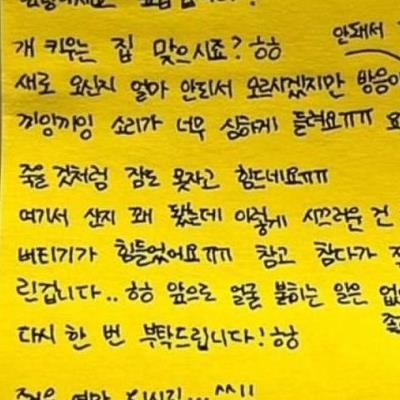 안돼서
개 키우는 집 맞으시죠? ㅎㅎ
새로 오신지 얼마 안되서 모르시겠지만 방음이
끼잉끼잉 소리가 너무 심하게 들려요ㅠㅠ
죽을 것처럼 잠도 못자고 힘드네요ㅠㅠ
여기서 산지 꽤 됐는데 이렇게 시끄러운 건
버티기가 힘들었어요ㅠㅠ 참고 참다가
린겁니다.. ㅎㅎ 앞으로 얼굴 붉히는 일은
다시 한 번 부탁드립니다! ㅎㅎ